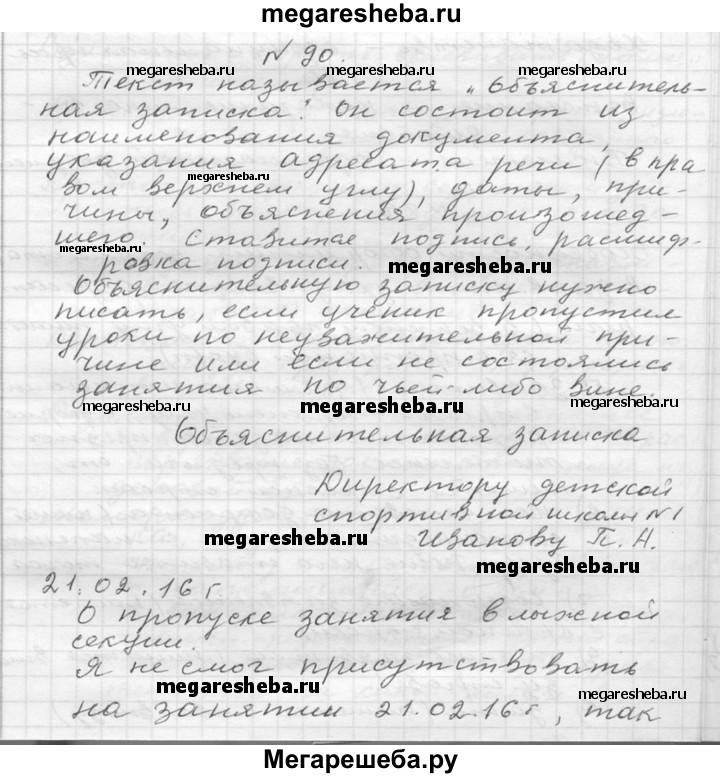 megaresheba.ru
N 90.
megaresheba.ru megaresheba.ru
Текст называется „Объяснитель-
ная записка". Он состоит из
наименования документа,
указания адресата речи (в пра
megaresheba.ru
вом верхнем углу), даты, при-
чины, объяснения произошед-
шего. Ставится подпись, расшиф-
megaresheba.ru megaresheba.ru
ровка подписи.
megaresheba.ru
Объяснительную записку нужно
писать, если ученик пропустил
уроки по неуважительной при-
чине или если не состоялись
занятия по чьей-либо вине.
megaresheba.ru megaresheba.ru megaresheba.ru
Объяснительная записка
Директору детской
спортивной школы №1
megaresheba.ru Иванову П. Н.
megaresheba.ru
21.02.16 г.
О пропуске занятия в лыжной
секции.
Я не смог присутствовать
megaresheba.ru megaresheba.ru
на занятии 21.02.16 г, так
Мегарешеба.ру